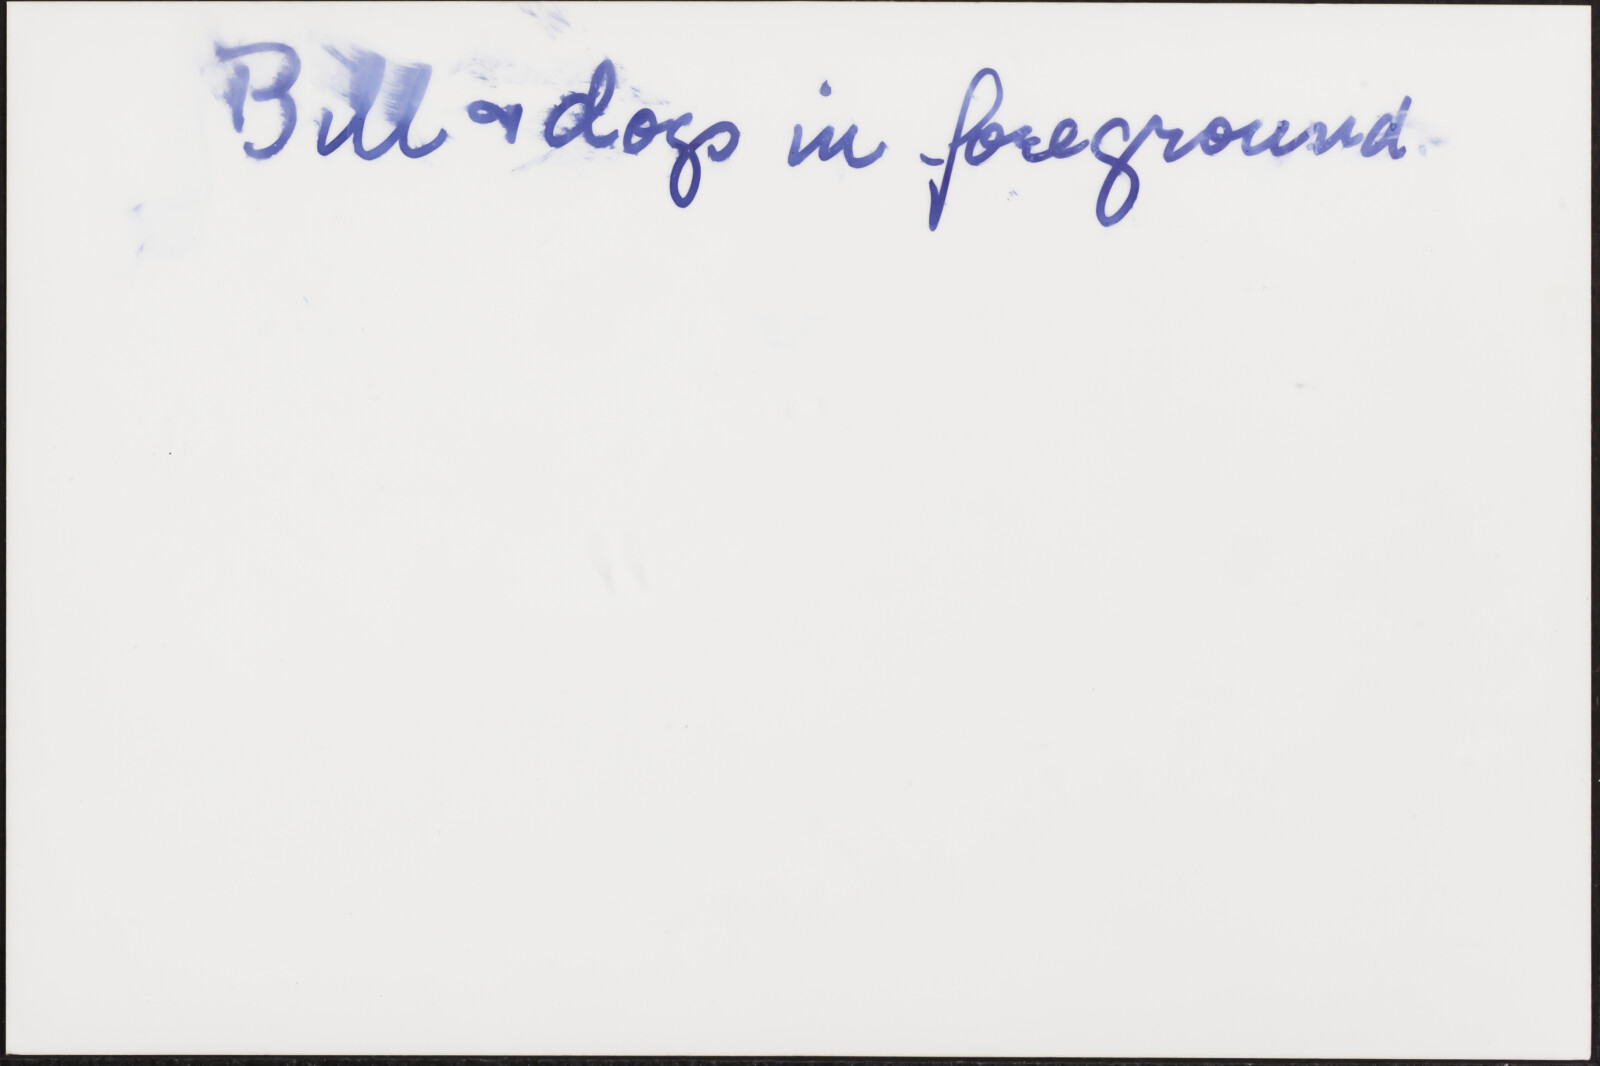 Bill & dogs in foreground